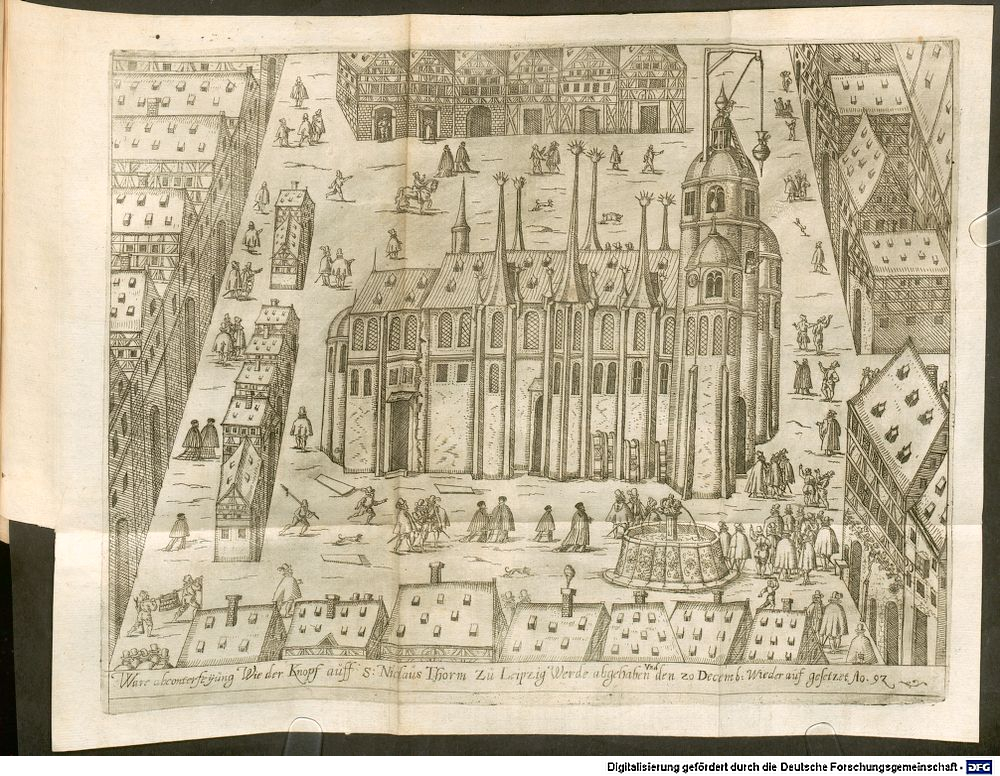 Ware abconterfeyung Wie der Knopf auff S: Niclaus Thorm Zu Leipzig Werde abgehaben Vnd den 20 Decemb: Wieder auf gesetzet Ao. 92
Digitalisierung gefördert durch die Deutsche Forschungsgemeinschaft - DFG